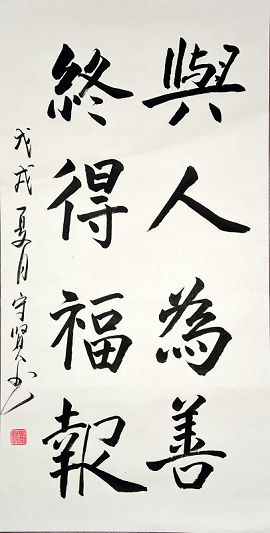 與人為善
終得福報
戊戌夏月守賢书